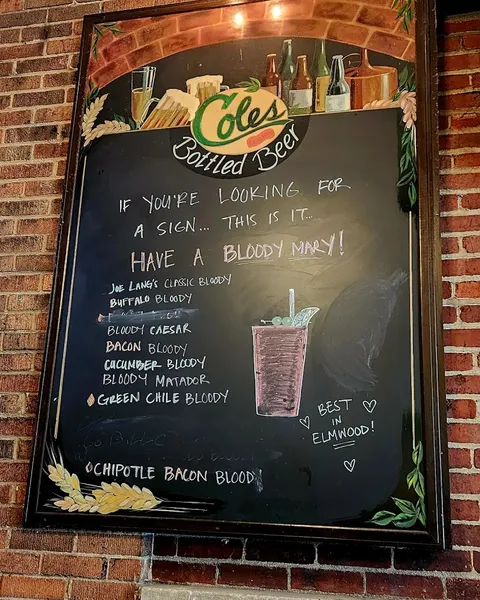 Coles
Bottled Beer
IF YOU'RE LOOKING FOR
A SIGN... THIS IS IT...
HAVE A BLOODY MARY!
JOE LANG'S CLASSIC BLOODY
BUFFALO BLOODY
BLOODY CAESAR
BACON BLOODY
CUCUMBER BLOODY
BLOODY MATADOR
GREEN CHILE BLOODY
BEST
IN
ELMWOOD!
CHIPOTLE BACON BLOOD